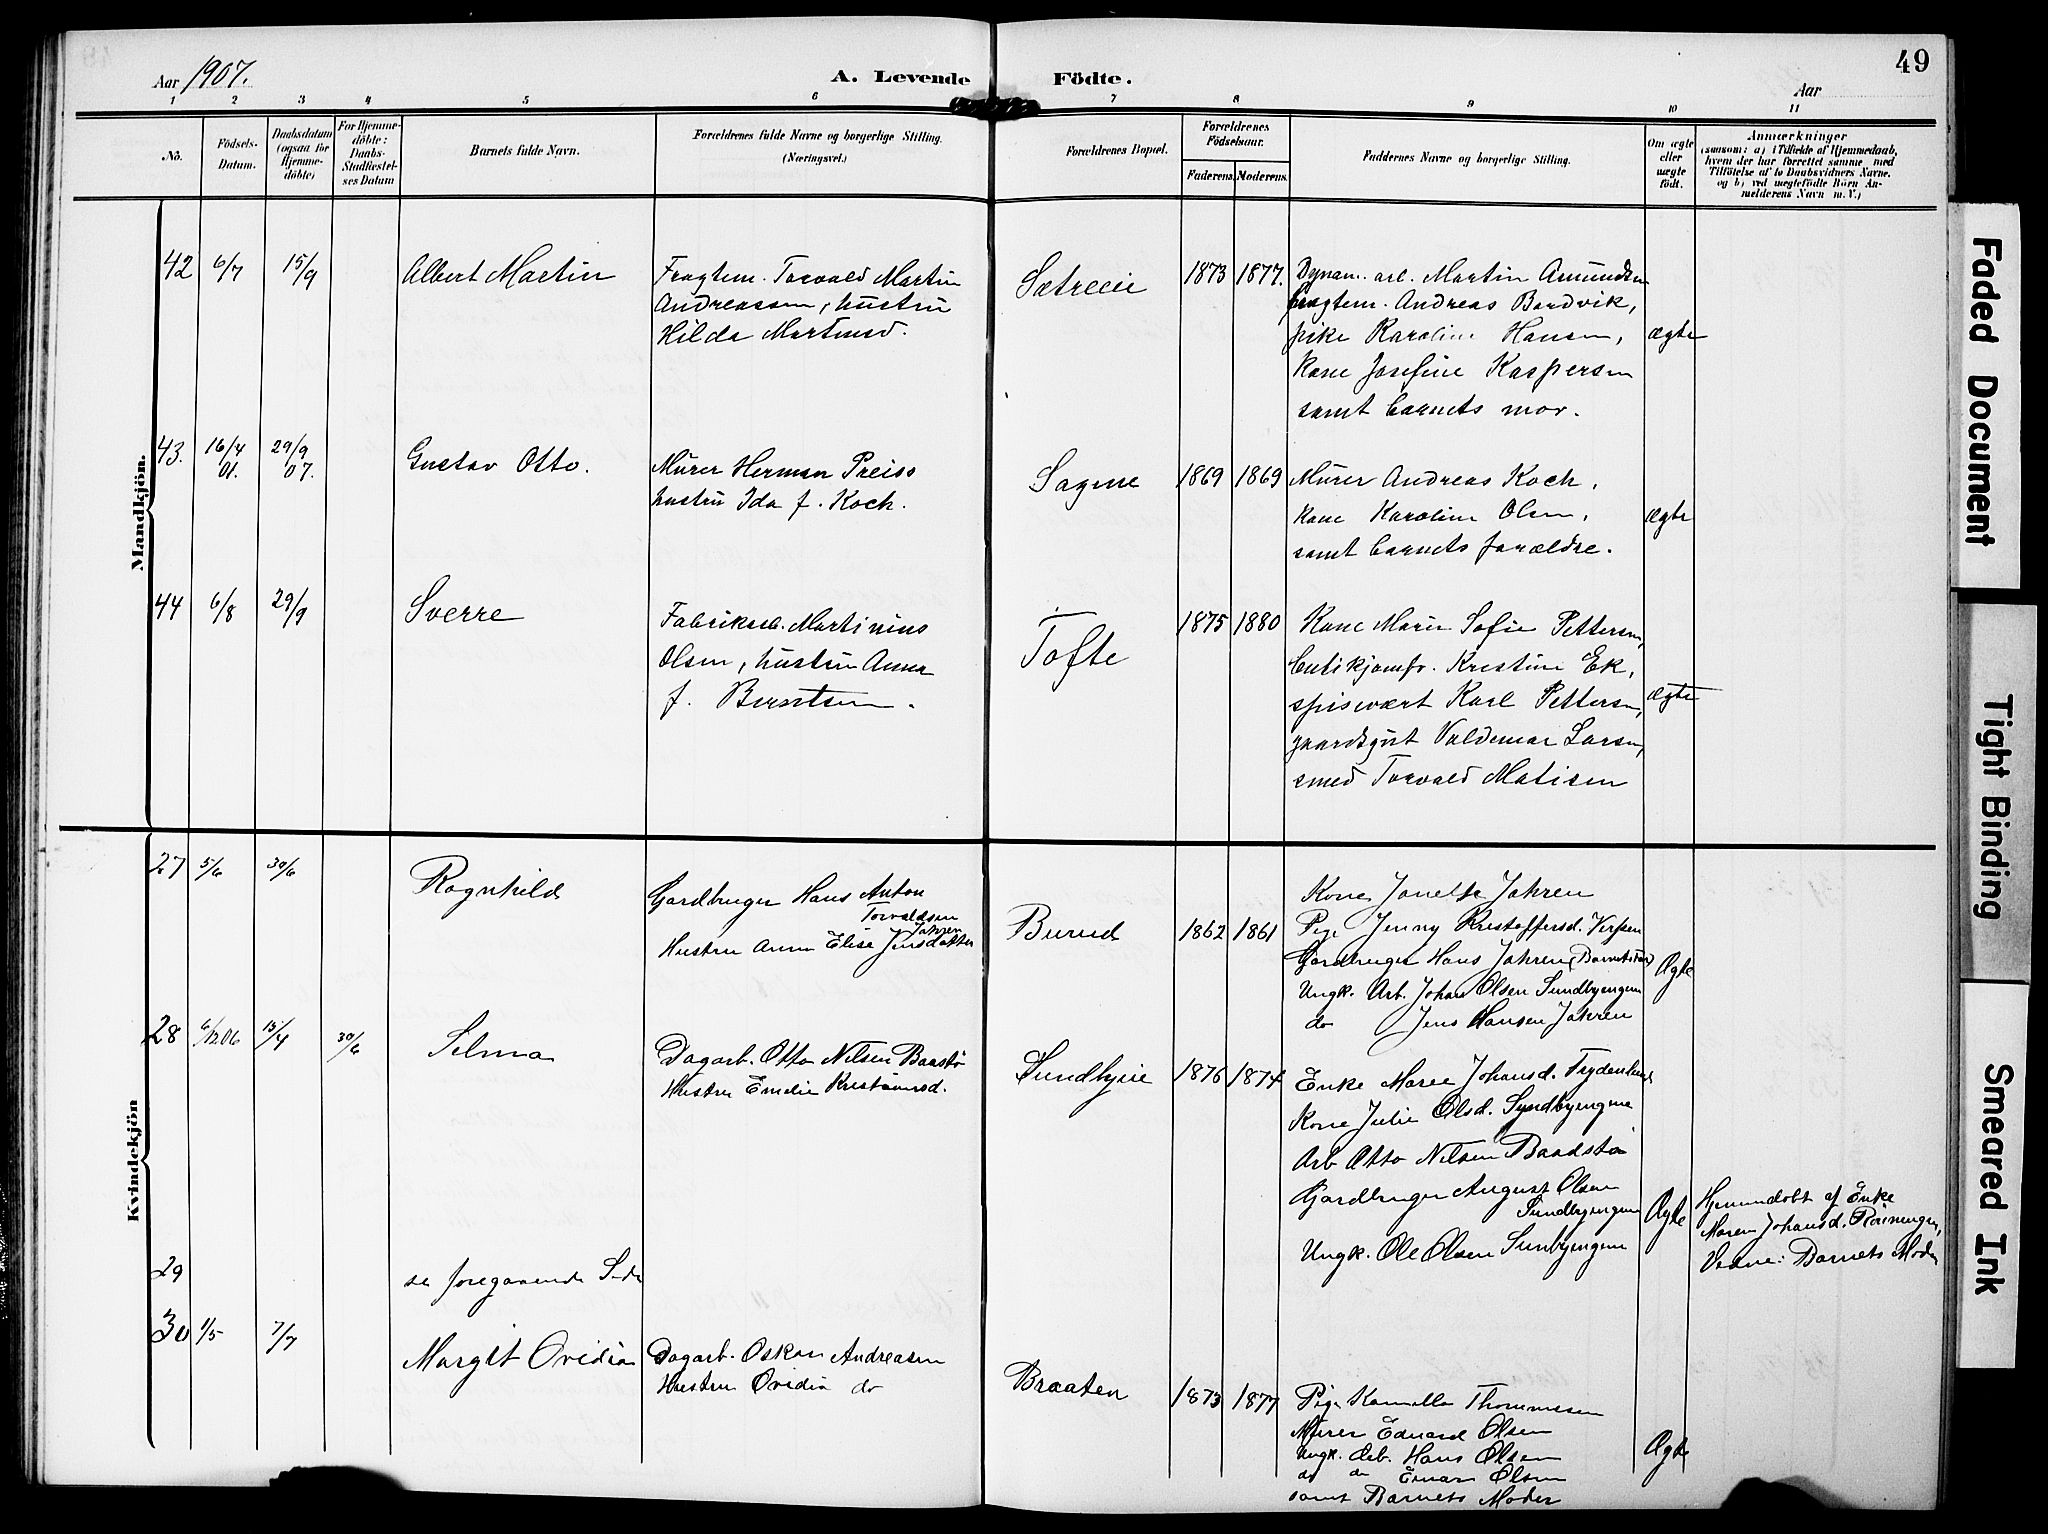 Aar 1907.
A. Levende Födte.
49
Aar
1 2 3 4 5 6 7 8 9 10 11
No.
Födsels-Datum.
Daabsdatum (ogsaa for Hjemme-döbte)
For Hjemme-döbte: Daabs-Stadfæstel-ses Datum
Barnets fulde Navn.
Forældrenes fulde Navne og borgerlige Stilling. (Næringsvei.)
Forældrenes Bopæl.
Forældrenes Födselsaar.
Faderens. Moderens.
Faddernes Navne og borgerlige Stilling.
Om ægte eller uægte födt.
Anmærkninger
(saasom: a) i Tilfælde af Hjemmedaab,
hvem der har forrettet samme med
Tilföielse af to Daabsvidners Navne.
og b) ved uægtefödte Börn An-
melderens Navn m. V.)
Mandkjön.
42 6/7 15/9 Albert Martin
Fragtem. Torvald Martin
Andreassen, hustru
Hilda Martinsd.
Sætreeie 1873 1877.
Dynam. arb. Martin Amundsen
fragtem. Andreas Bardvik,
pike Karoline Hansen,
kone Josefine Kaspersen
samt barnets mor.
ægte
43. 16/4 01. 29/9 07. Gustav Otto.
Murer Herman Preiss
hustru Ida f. Koch.
Sagene 1869 1869
Murer Andreas Koch,
kone Karoline Olsen,
samt barnets forældre.
ægte
44 6/8 29/9 Sverre
Fabriksarb. Martinius
Olsen, hustru Anna
f. Berntsen.
Tofte 1875 1880
Kone Marie Sofie Pettersen,
butikjomfr. Kristine Ek,
spisevært Karl Pettersen,
gaardsgut Valdemar Larsen,
smed Torvald Matisen
ægte
Kvindekjön
27 5/6 30/6 Ragnhild
Gardbruger Hans Anton
Torvaldsen
Jahren
Hustru Anna Elise Jensdatter
Burud 1862 1861
Kone Janette Jahren
Pige Jenny Kristoffersd.
Gardbruger Hans Jahren (Barnets Far)
Ungk. Arb. Johan Olsen Sundbyengen
do Jens Hansen Jahren
Ægte
28 6/12 06 15/4 30/6 Selma
Dagarb. Otto Nilsen Baastö
Hustru Emilie Kristiansd.
Sundbyeie 1876 1874
Enke Maree Johansd. Frydenlund
Kone Julie Olsd. Syndbyengene
Arb Otto Nilsen Baadstö
Gardbruger August Olsen
Sundbyengen
Ungk. Ole Olsen Sunbyengene
Ægte
Hjemmedöbt af Enke
Maren Johansd.
Vidne: Barnets Moder
29 se foregaaende Side
30 1/5 7/7 Margit Ovidia
Dagarb. Oskar Andreasen
Hustru Ovidia do
Braaten 1873 1877
Pige Kamilla Thommesen
Murer Edvard Olsen
Ungk. Arb. Hans Olsen
do do Einar Olsen
samt Barnets Moder
Ægte
Faded Document
Tight Binding
Smeared Ink